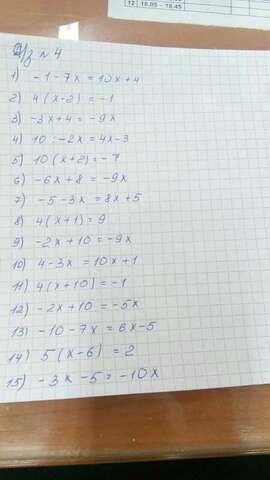 12 18.05 - 18.45
Д/з N 4
1) -1-7x=10x+4
2) 4(x-2)=-1
3) -3x+4=-9x
4) 10-2x=4x-3
5) 10(x+2)=-7
6) -6x+8=-9x
7) -5-3x=8x+5
8) 4(x+1)=9
9) -2x+10=-9x
10) 4-3x=10x+1
11) 4(x+10)=-1
12) -2x+10=-5x
13) -10-7x=6x-5
14) 5(x-6)=2
15) -3x-5=-10x